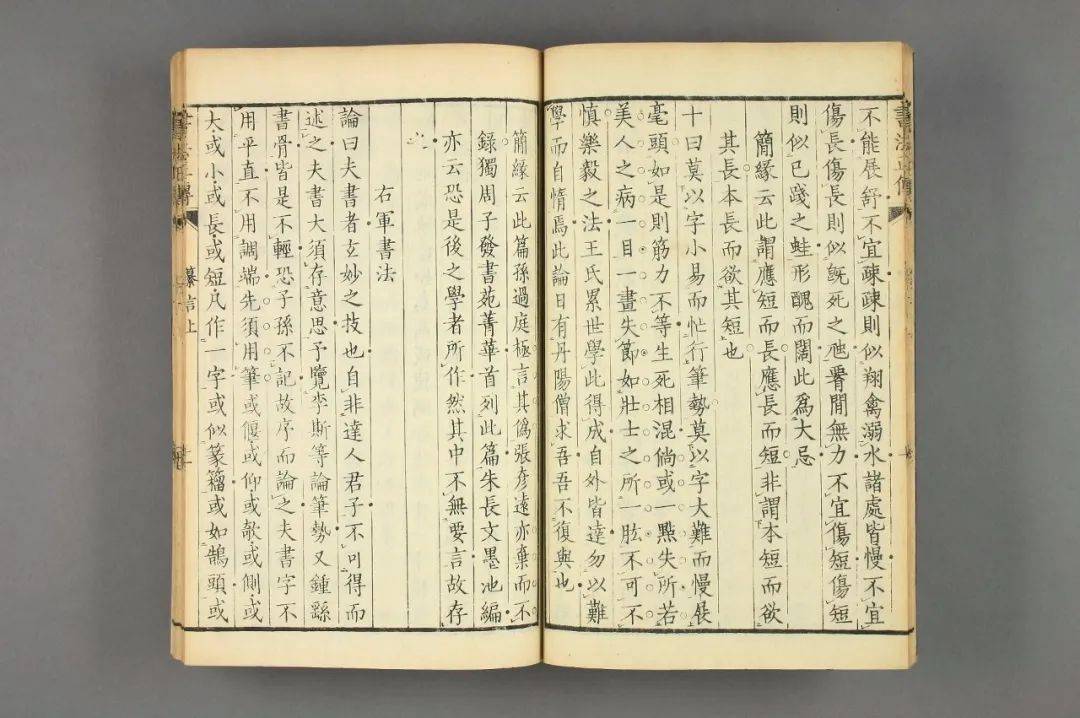 書法正傳
不能展舒不宜疎疎則似翔禽溺水諸處皆慢不宜
傷長傷長則似旣死之虵腎間無力不宜傷短傷短
則似已踐之蛙形醜而闊此爲大忌
簡緣云此謂應短而長應長而短非謂本短而欲
其長本長而欲其短也
十曰莫以字小易而忙行筆勢莫以字大難而慢展
毫頭如是則筋力不等生死相混倘或一點失所若
美人之病一目一畫失節如壯士之所一肱不可不
慎樂毅之法王氏累世學此得成自外皆達勿以難
學而自惰焉此論日有丹陽僧求吾吾不復與也
簡緣云此篇孫過庭極言其偽張彥遠亦棄而不
錄獨周子發書苑菁華首列此篇朱長文墨池編
亦云恐是後之學者所作然其中不無要言故存
之
右軍書法
論曰夫書者玄妙之技也自非達人君子不可得而
述之夫書大須存意思予覽李斯等論筆勢又鍾繇
書骨皆是不輕恐子孫不記故序而論之夫書字不
用平直不用調端先須用筆或偃或仰或欹或側或
大或小或長或短凡作一字或似篆籀或如鵠頭或
纂言上